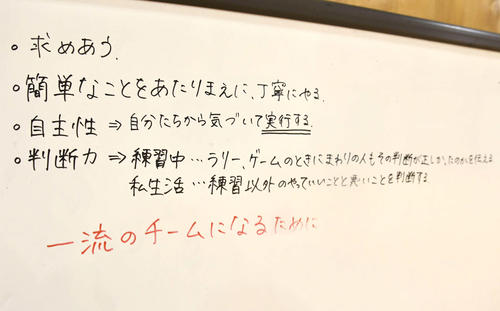 ◦ 求めあう.
◦ 簡単なことをあたりまえに、丁寧にやる.
◦ 自主性 ⇒ 自分たちから気づいて実行する.
◦ 判断力 ⇒ 練習中…ラリー、ゲームのときにまわりの人もその判断が正しかったのかを伝える
私生活…練習以外のやっていいことと悪いことを判断する
一流のチームになるために